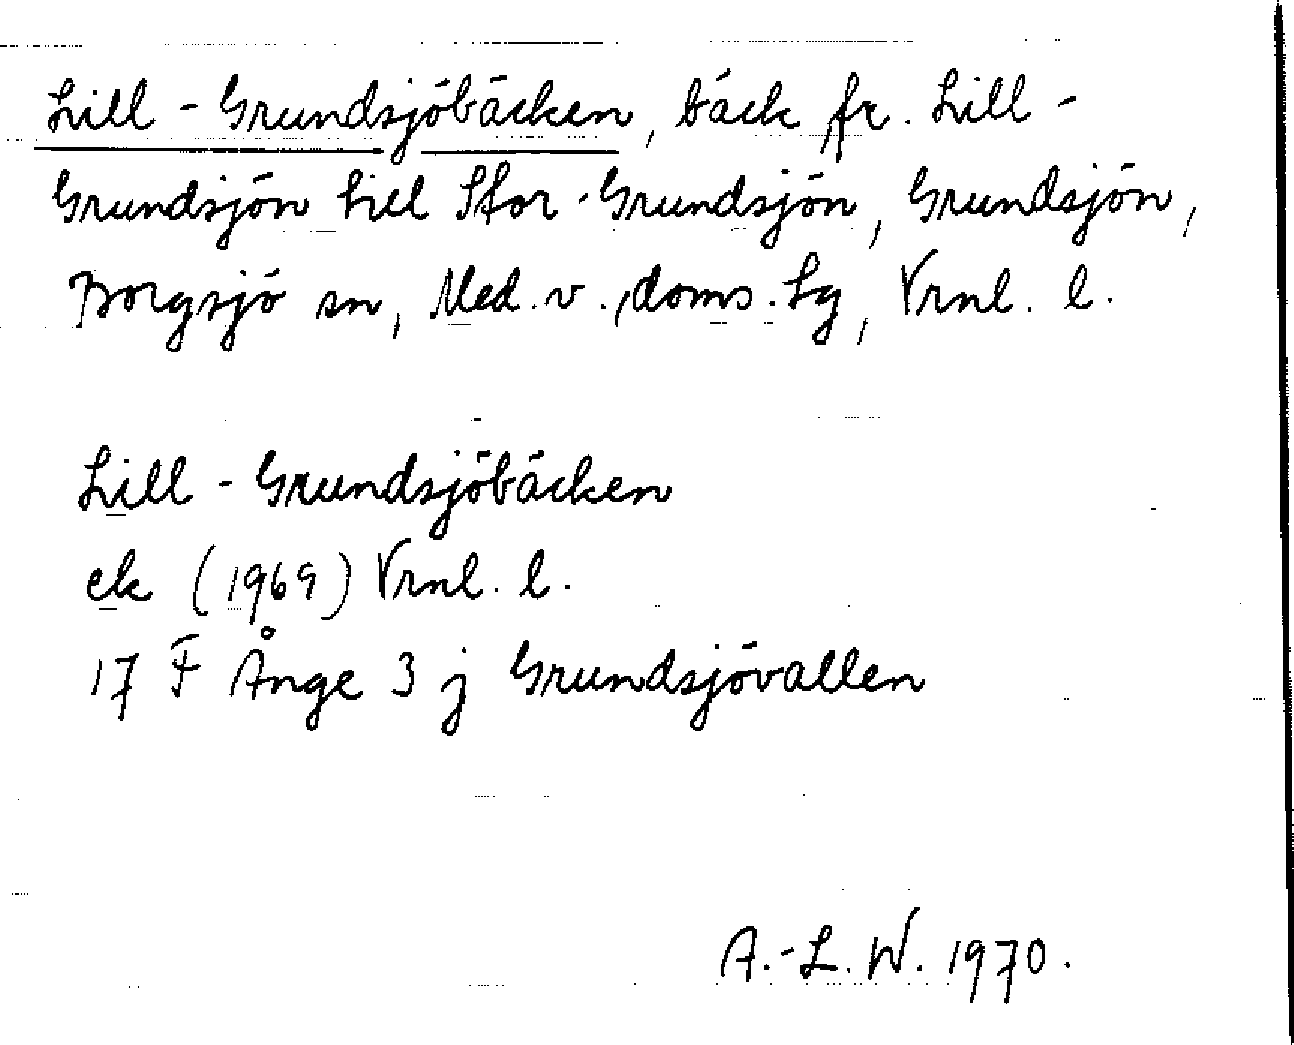 Lill-Grundsjöbäcken, bäck fr. Lill-
Grundsjön till Stor-Grundsjön, Grundsjön,
Borgsjö sn, Med. v., doms. lg, Vrnl. l.
Lill-Grundsjöbäcken
ek (1969) Vrnl. l.
17 F Ånge 3 j Grundsjövallen
A.-L. W. 1970.